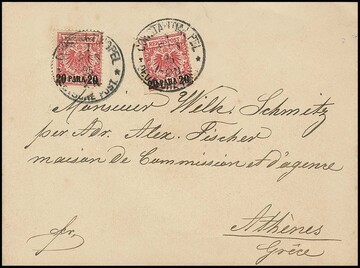 CONSTANTINOPEL
DEUTSCHE POST
20 PARA 20
20 PARA 20
Monsieur Wilh. Schmitz
per Adr. Alex. Fischer
maison de Commission et d'agence
Athènes
Grèce